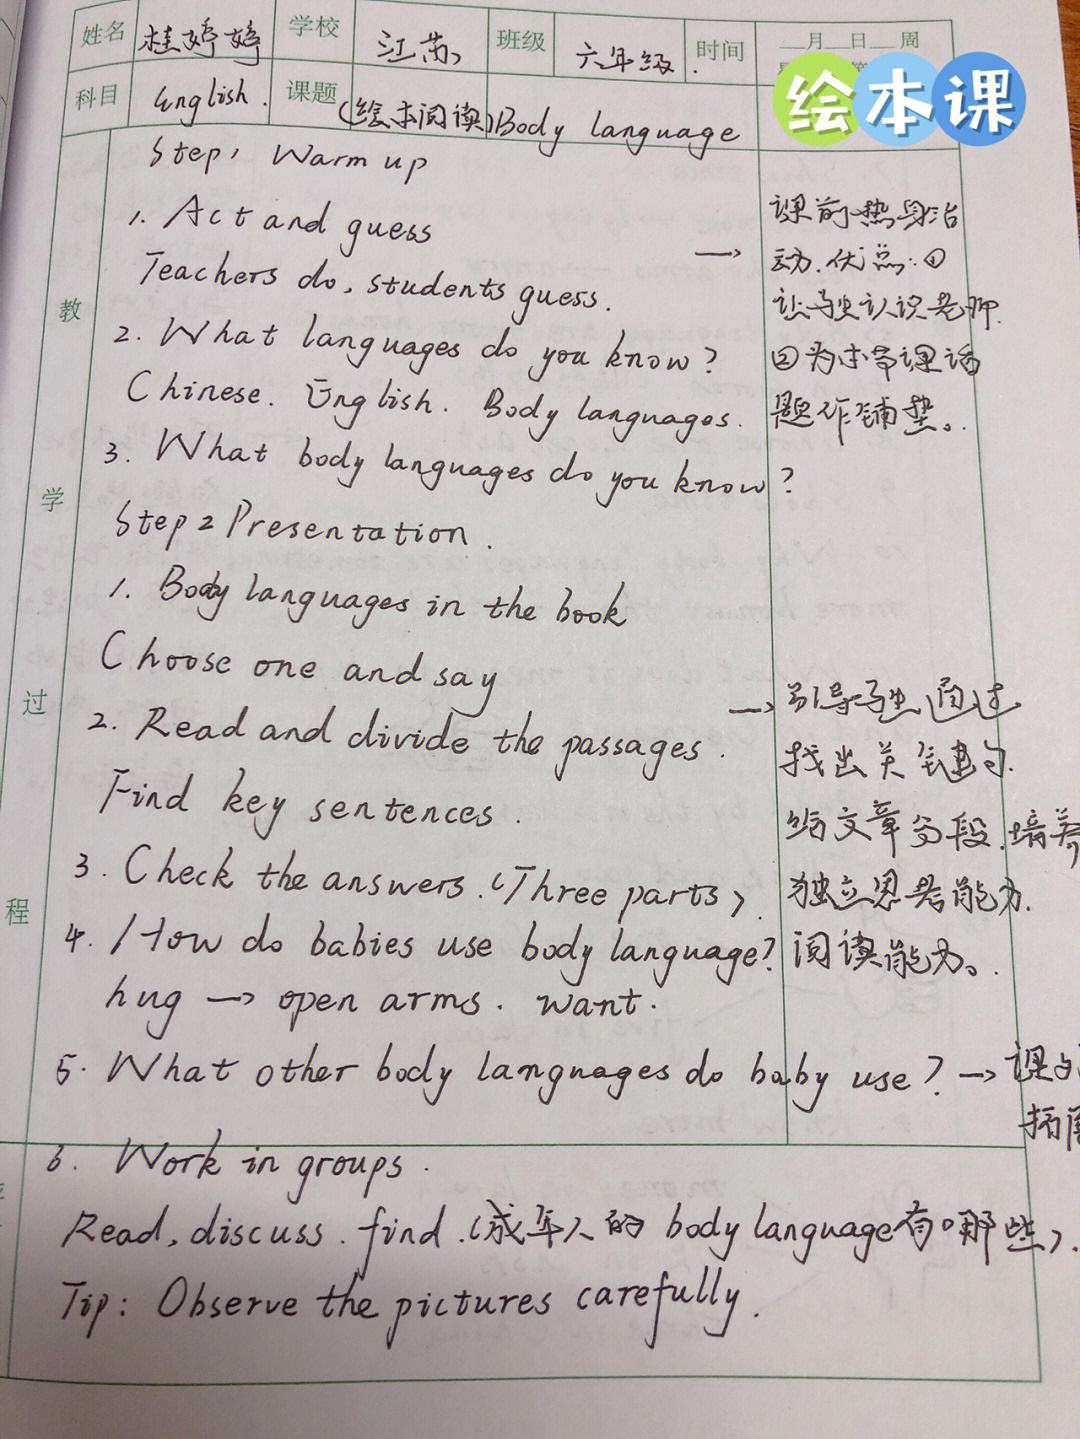 姓名 桂婷婷 学校 江苏 班级 六年级 时间 __月__日__周
科目 English. 课题 (绘本阅读)Body language
绘本课
教学过程
Step1 Warm up
1. Act and guess
Teachers do, students guess.
→ 课前热身活
动.优点:①
让学生认识老师.
②为本节课话
题作铺垫。
2. What languages do you know?
Chinese. English. Body languages.
3. What body languages do you know?
Step 2 Presentation.
1. Body languages in the book
Choose one and say
2. Read and divide the passages.
Find key sentences.
→ 引导学生通过
找出关键句.
给文章分段.培养
独立思考能力.
阅读能力。
3. Check the answers. (Three parts).
4. How do babies use body language?
hug → open arms. want.
5. What other body languages do baby use? → 课
拓
6. Work in groups.
Read, discuss. find. (成年人的 body language有哪些).
Tip: Observe the pictures carefully.